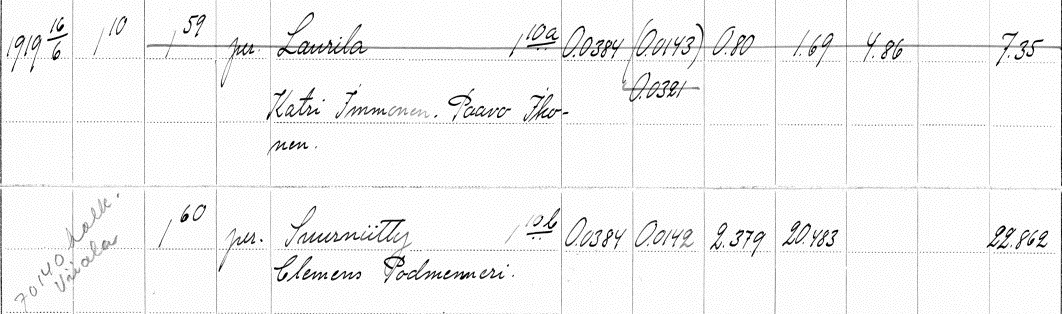 1919 16/6 1 10 1 59 per. Laurila 1 10a 0.0384 (0.0143) 0.80 1.69 4.86 7.35
0.0321
Katri Immonen. Paavo Iko-
nen.
1 60 per. Suurniitty 1 10b 0.0384 0.0142 2.379 20.483 22.862
Clemens Podmenneri.
70140 halk.
Viiala